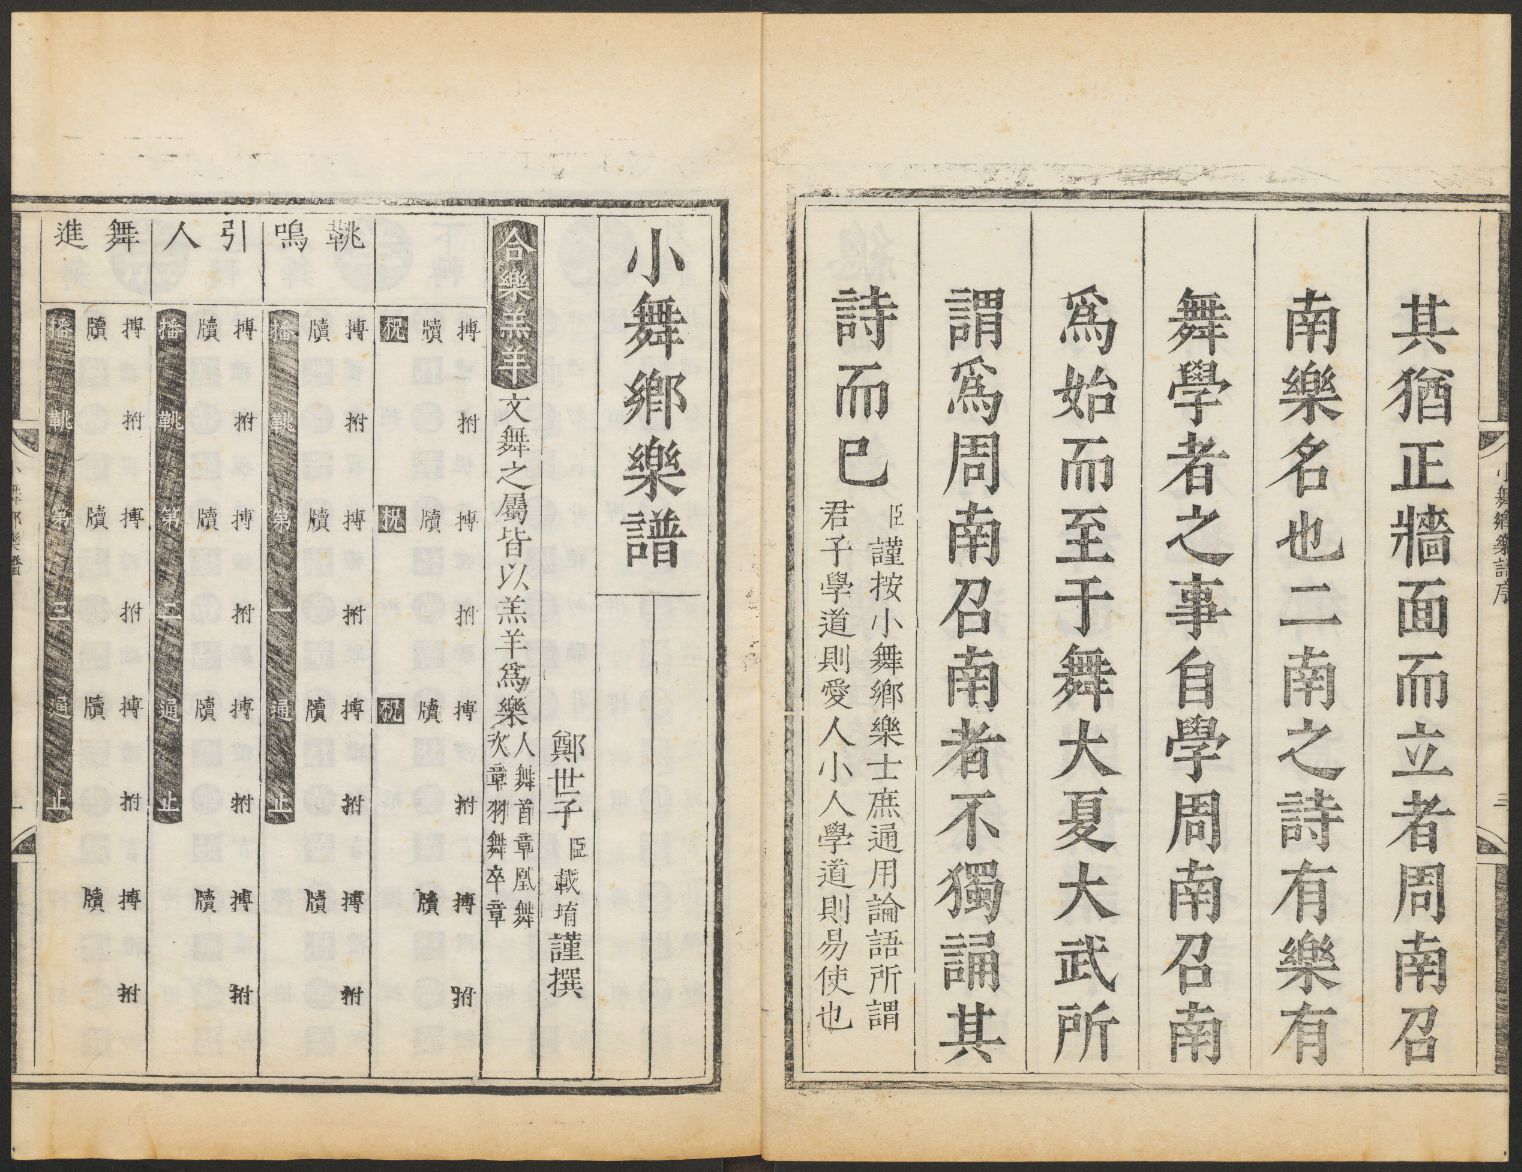 其猶正牆面而立者周南召
南樂名也二南之詩有樂有
舞學者之事自學周南召南
爲始而至于舞大夏大武所
謂爲周南召南者不獨誦其
詩而已
臣謹按小舞鄉樂士庶通用論語所謂
君子學道則愛人小人學道則易使也
小舞鄉樂譜序
三
小舞鄉樂譜
鄭世子臣載堉謹撰
合樂羔羊文舞之屬皆以羔羊爲樂
人舞首章凰舞
次章羽舞卒章
鼗鳴引人舞進
搏拊搏拊搏拊搏拊
牘牘牘牘
柷柷柷
搏拊搏拊搏拊搏拊
牘牘牘牘
播鼗第一通止
搏拊搏拊搏拊搏拊
牘牘牘牘
播鼗第二通止
搏拊搏拊搏拊搏拊
牘牘牘牘
播鼗第三通止
小舞鄉樂譜
一